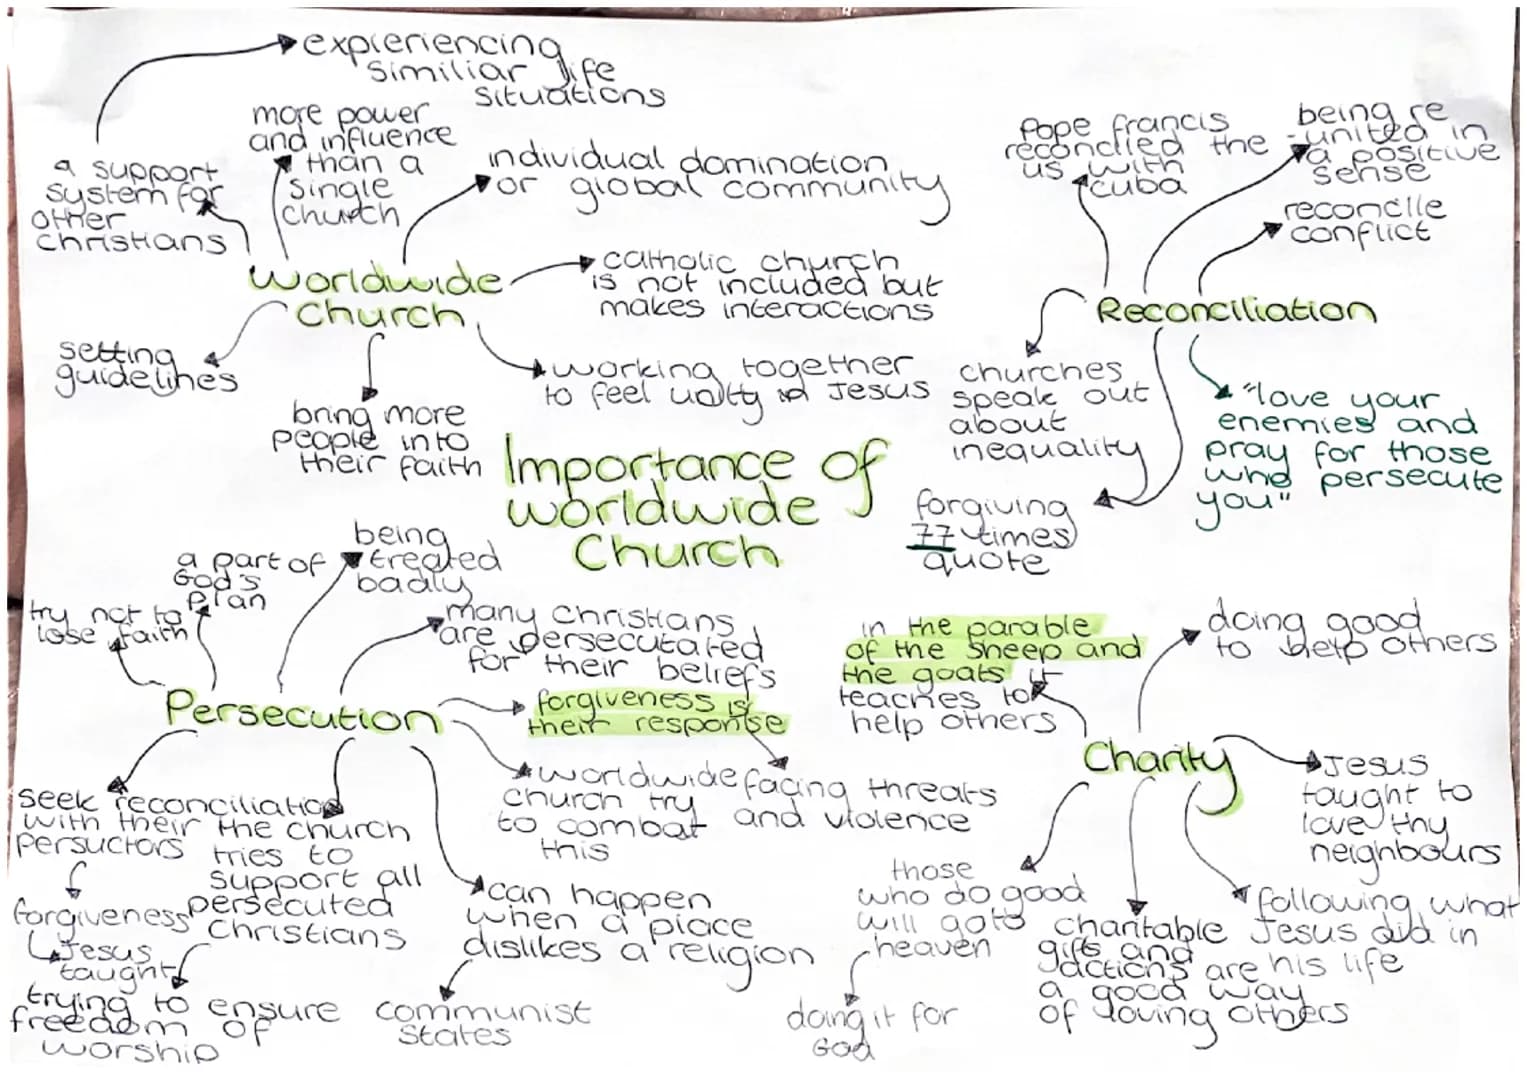 expieriencing
similiar life
situations
a support
system for
other
christians
more power
and influence
than a
single
church
individual domination
or global community
Worldwide
Church
catholic church
is not included but
makes interactions
setting
guidelines
bring more
people into
their faith
working together
to feel unity in Jesus
Pope francis
recondied the
us with
cuba
being re
-united in
a positive
sense
reconcile
conflict
Reconciliation
churches
speak out
about
inequality
"love your
enemies and
pray for those
who persecute
you"
forgiving
77 times
quote
Importance of
worldwide
Church
try not to
lose faith
a part of
God's
plan
being
treated
badly
many Christians
are persecutated
for their beliefs
Persecution
forgiveness is
their response
facing threats
and violence
worldwide
church try
to combat
this
seek reconciliation
with their
persuctors
forgiveness
Jesus
taught
the church
tries to
support all
persecuted
christians
trying to ensure
freedom of
worship
can happen
when a place
dislikes a religion
communist
states
in the parable
of the sheep and
the goats it
teaches to
help others
doing good
to help others
Charity
Jesus
taught to
love thy
neighbours
those
who do good
will go to
heaven
doing it for
God
charitable
gifts and
actions are
a good way
of loving others
following what
Jesus did in
his life